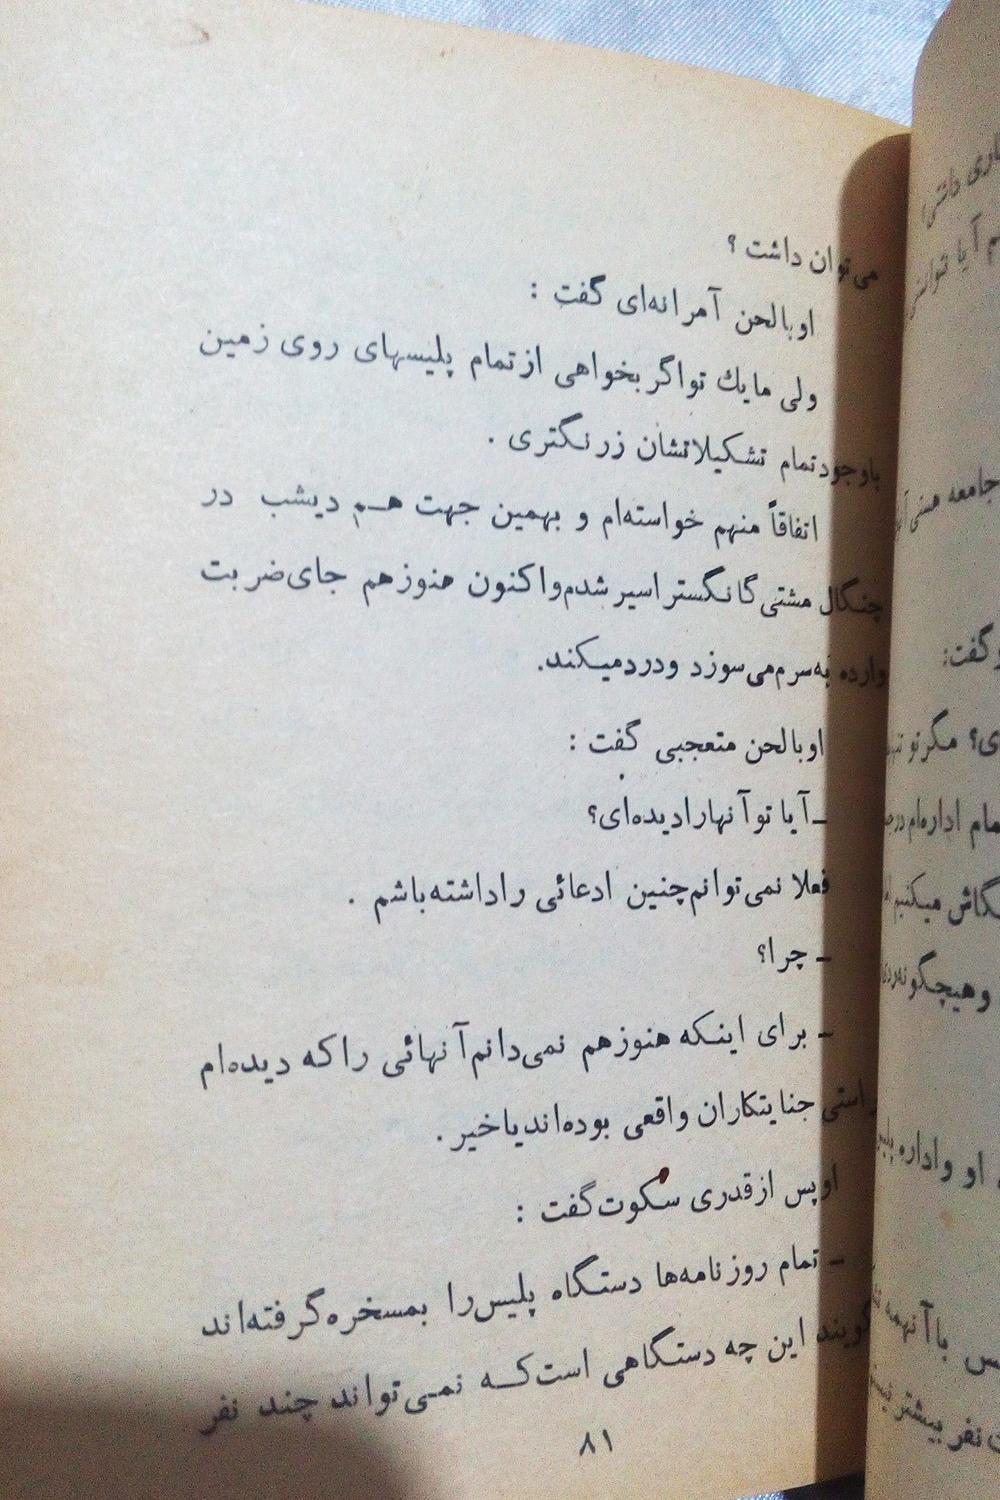 می‌توان داشت ؟
او بالحن آمرانه‌ای گفت :
ولی مایك تو اگر بخواهی از تمام پلیسهای روی زمین
باوجود تمام تشکیلاتشان زرنگتری .
اتفاقاً منهم خواسته‌ام و بهمین جهت هم دیشب در
چنگال مشتی گانگستر اسیر شدم و اکنون هنوز هم جای ضربت
وارده به سرم می‌سوزد و درد میکند.
او بالحن متعجبی گفت :
ـ آیا تو آنها را دیده‌ای؟
فعلا نمی‌توانم چنین ادعائی را داشته باشم .
ـ چرا؟
ـ برای اینکه هنوز هم نمی‌دانم آنهائی را که دیده‌ام
راستی جنایتکاران واقعی بوده‌اند یا خیر .
او پس از قدری سکوت گفت :
ـ تمام روزنامه‌ها دستگاه پلیس را بمسخره گرفته‌اند
گویند این چه دستگاهی است که نمی‌تواند چند نفر
۸۱
آیا
جامعه
گفت:
مگر تو
اداره‌ام
میکنیم
وهیچگونه
او و اداره
با آنهمه
نفر بیشتر